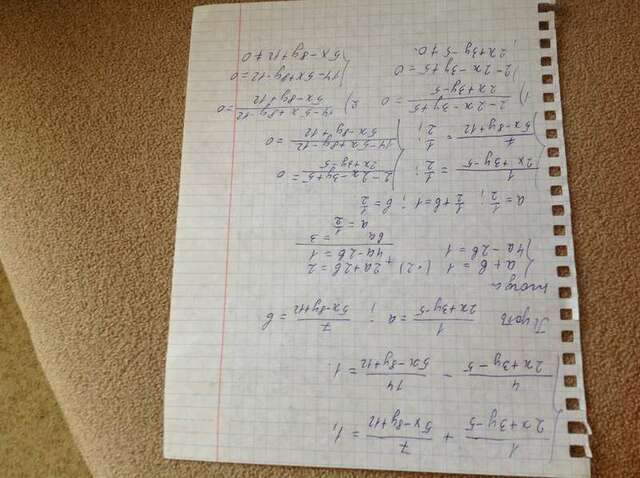 { 1/(2x+3y-5) + 7/(5x-8y+12) = 1,
4/(2x+3y-5) - 14/(5x-8y+12) = 1.
Пусть 1/(2x+3y-5) = a ; 7/(5x-8y+12) = b
тогда
{ a + b = 1 (·2) + 2a+2b = 2
4a-2b = 1 4a-2b = 1
6a = 3
a = 1/2
a = 1/2 ; 1/2 + b = 1 ; b = 1/2
{ 1/(2x+3y-5) = 1/2 ; { (2-2x-3y+5)/(2x+3y-5) = 0
7/(5x-8y+12) = 1/2 ; (14-5x+8y-12)/(5x-8y+12) = 0
1) (2-2x-3y+5)/(2x+3y-5) = 0 2) (14-5x+8y-12)/(5x-8y+12) = 0
{ 2-2x-3y+5 = 0 { 14-5x+8y-12 = 0
2x+3y-5 ≠ 0. 5x-8y+12 ≠ 0